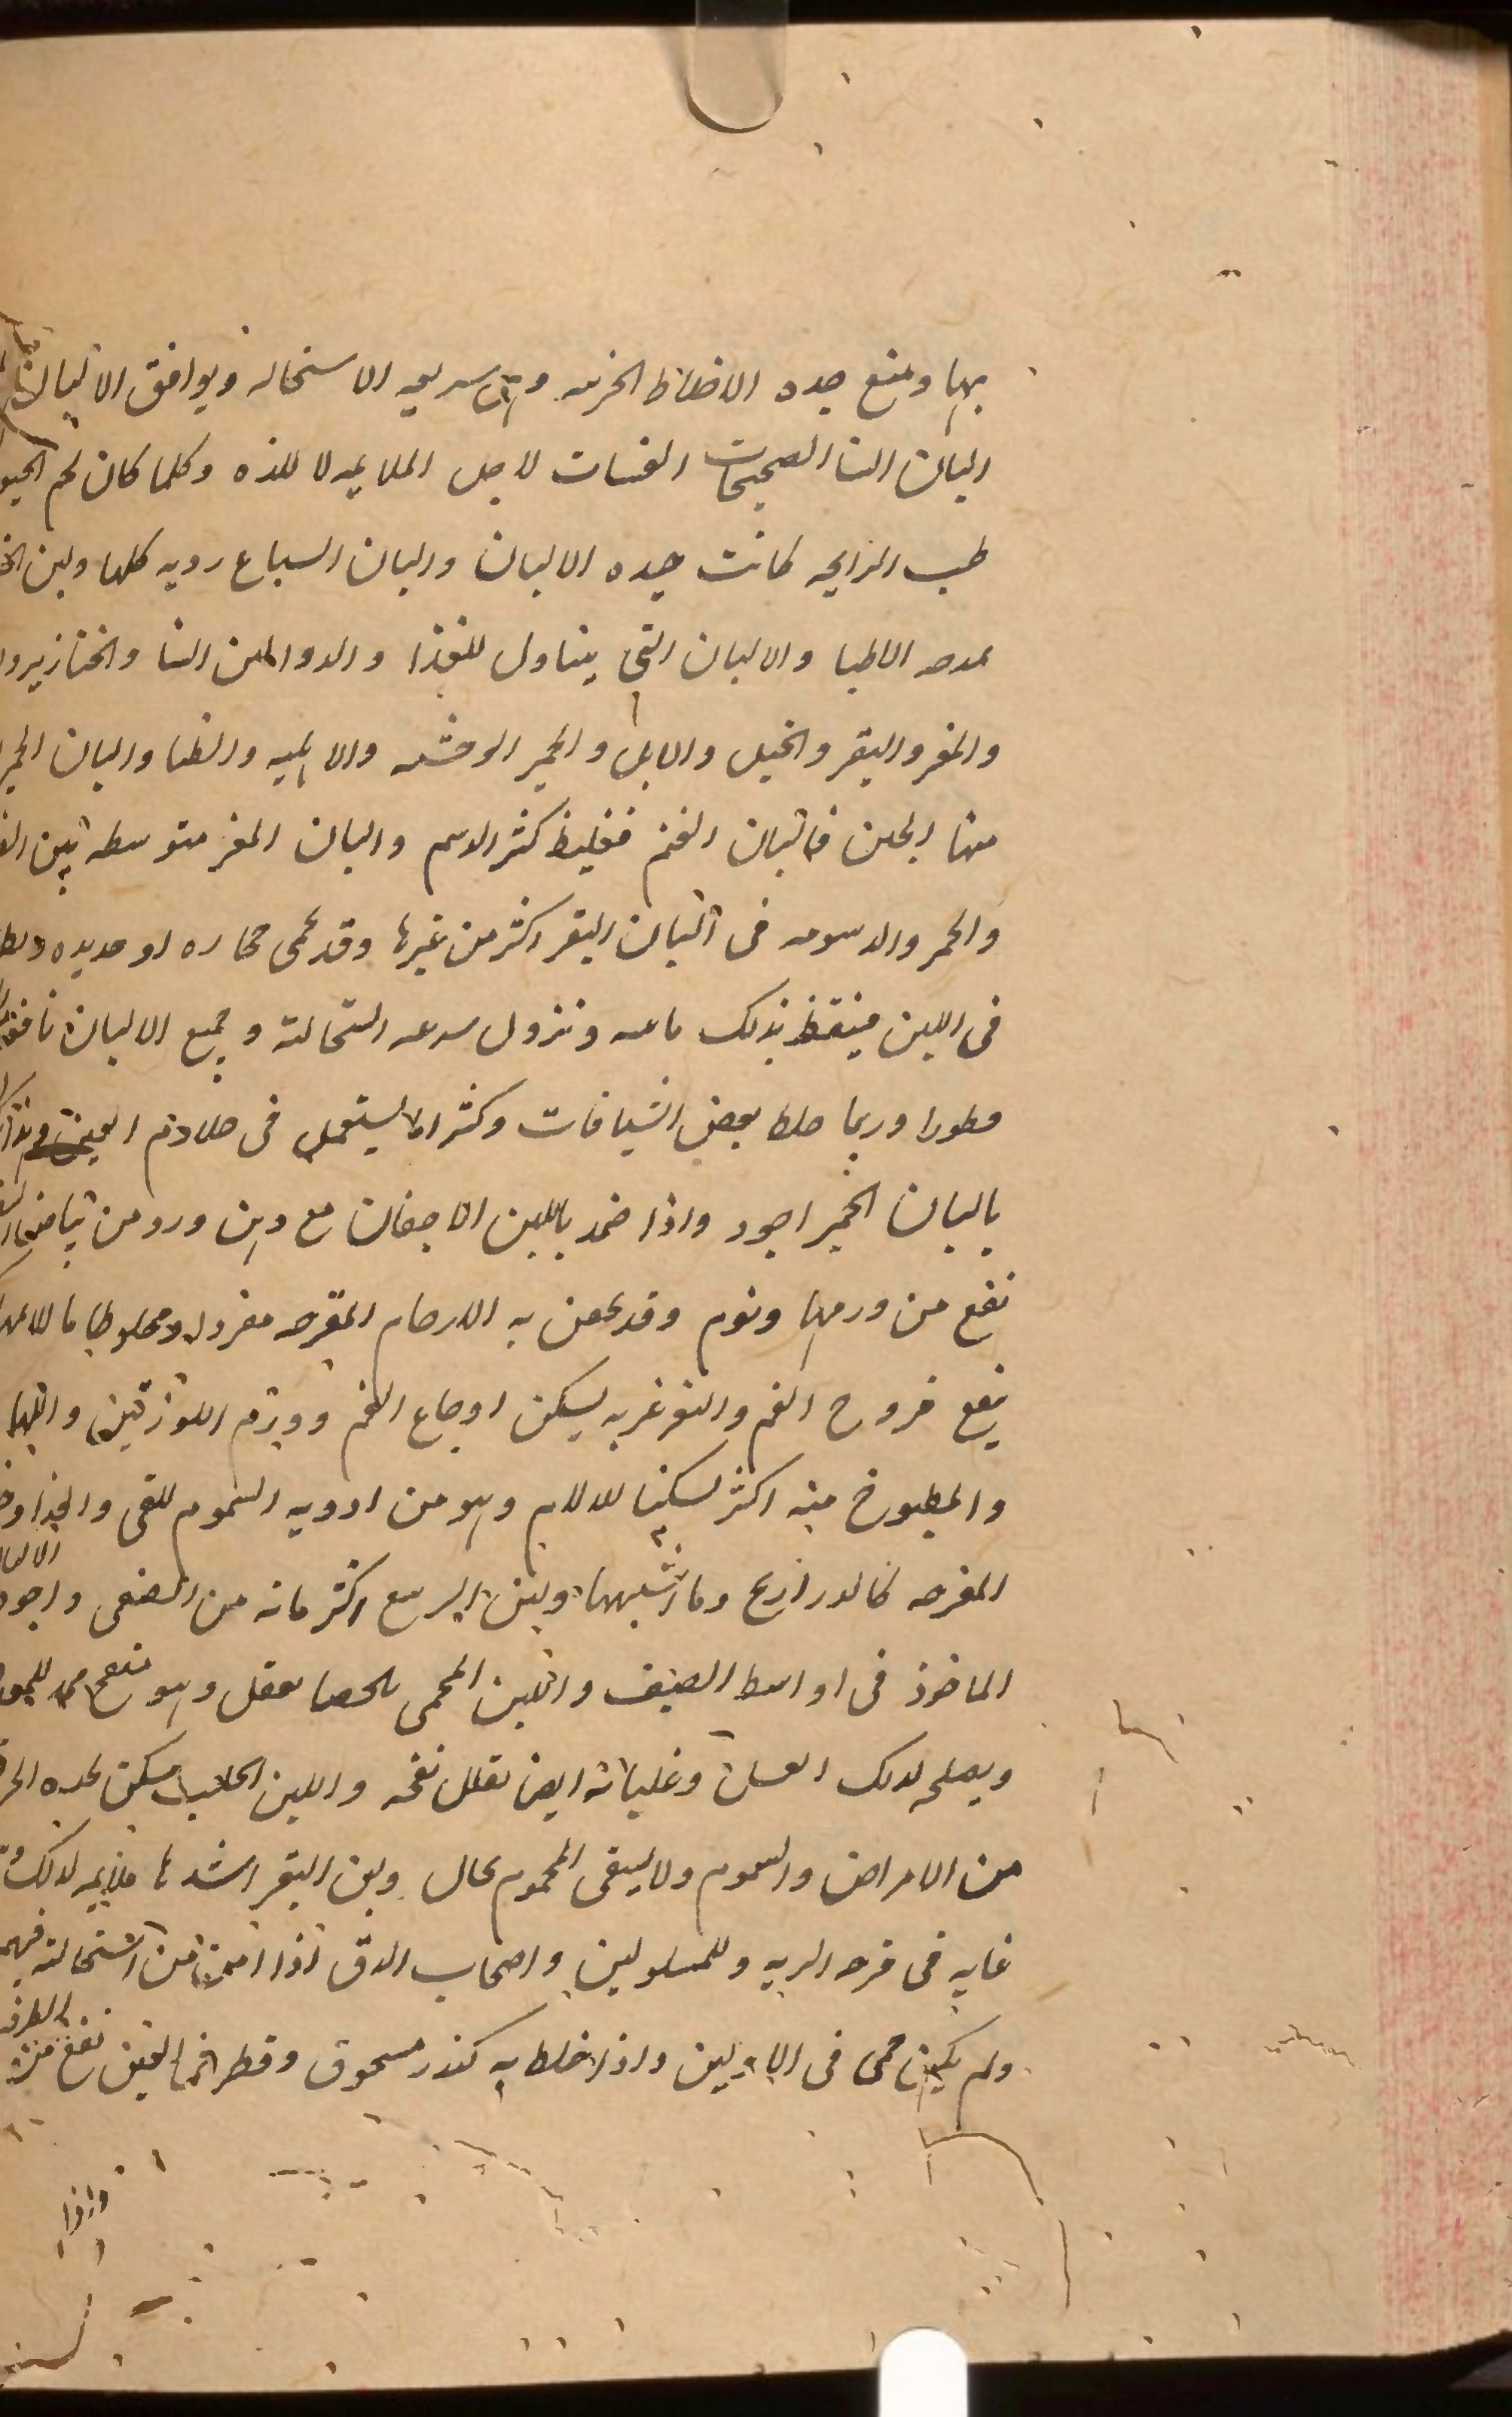 بها ويمنع حده الاخلاط الحريفه وهى سريعه الاستحاله ويوافق الالبان
البان النسا الصحيحات الفتيات لاجل الملايمه لا للذه وكلما كان لحم
طيب الرايحه كانت جيده الالبان والبان السباع رديه كلها ولبن
الاطبا والالبان التى يتناول للغذا والدوا لبن النسا والخنازير
والمعز والبقر والخيل والابل والحمير الوحشيه والاهليه والظبا والبان الحمير
منها الجلن فالبان الغنم فغليظ كثر الدسم والبان المعز متوسطه بين
والحمر والدسومه فى البان البقر اكثر من غيرها وقد يحمى حجاره او حديده
فى اللبن فينقط بذلك مائيه وتزول سرعه استحالته وجميع الالبان نافعه
قطورا وربما خلط ببعض الشيافات وكثرا ما يستعمل فى صلابه العين
بالبان الحمير اجود واذا ضمد باللبن الاجفان مع دهن ورد ومن بياض
نفع من ورمها ونوم وقد يحقن به الارحام المقرحه مفردا ومخلوطا
ينفع قروح الفم والتغرغر به يسكن اوجاع الفم وورم اللوزتين واللهاه
والمطبوخ منه اكثر تسكينا للالام وهو من ادويه السموم للقى
المقرحه كالدراريح وما اشبهها ولبن الربيع اكثر مائه من الصيفى واجود الالبان
الماخوذ فى اواسط الصيف واللبن المحمى بالحصا يعقل وهو
ويصلحه لذلك العسل وغليانه ايضا يقلل نفخه واللبن الحليب يسكن
من الامراض والسموم ولا يسقى المحموم بحال ولبن البقر اشدها ملايمه لذلك
غايه فى قرحه الريه وللمسلولين واصحاب الدق اذا امن من استحالته
ولم يكن حمى فى الاولين واذا خلط به كندر مسحوق وقطر فى العين نفع من الطرفه
واذا